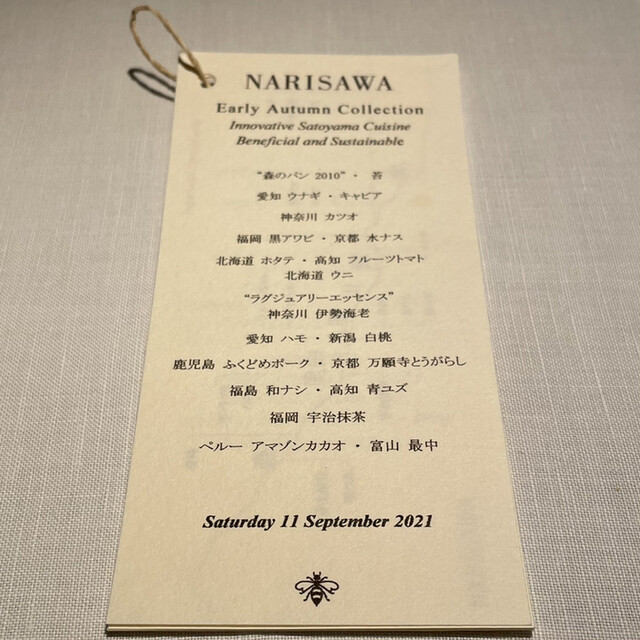 NARISAWA
Early Autumn Collection
Innovative Satoyama Cuisine
Beneficial and Sustainable
“森のパン 2010”・ 苔
愛知 ウナギ・キャビア
神奈川 カツオ
福岡 黒アワビ・京都 水ナス
北海道 ホタテ・高知 フルーツトマト
北海道 ウニ
“ラグジュアリーエッセンス”
神奈川 伊勢海老
愛知 ハモ・新潟 白桃
鹿児島 ふくどめポーク・京都 万願寺とうがらし
福島 和ナシ・高知 青ユズ
福岡 宇治抹茶
ペルー アマゾンカカオ・富山 最中
Saturday 11 September 2021